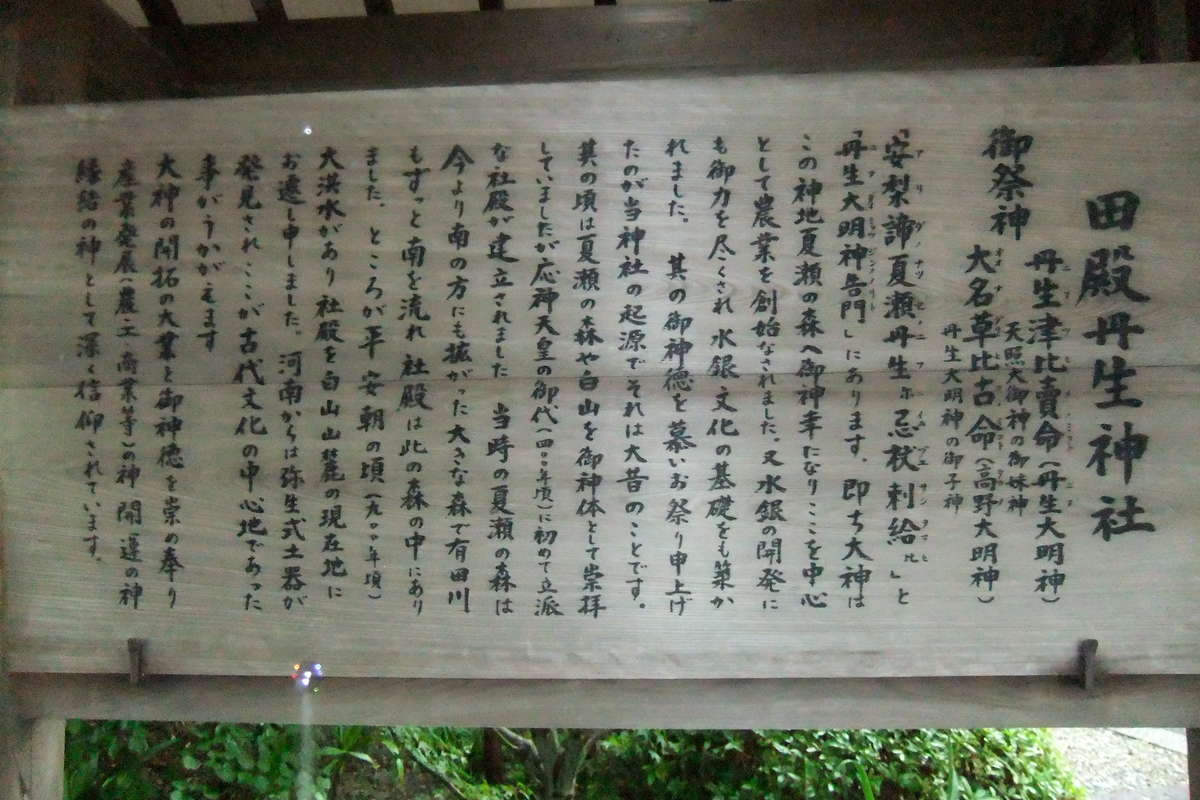 田殿丹生神社
御祭神
丹生津比賣命(丹生大明神)
天照大御神の御妹神
大名草比古命(高野大明神)
丹生大明神の御子神
「安梨諦夏瀬丹生ニ忌杖刺給比」と
「丹生大明神告門」にあります。即ち大神は
この神地夏瀬の森へ御神幸になりここを中心
として農業を創始なされました。又水銀の開発に
も御力を尽くされ水銀文化の基礎をも築か
れました。 其の御神徳を慕いお祭り申上げ
たのが当神社の起源でそれは大昔のことです。
其の頃は夏瀬の森や白山を御神体として崇拝
していましたが応神天皇の御代(四〇〇年頃)に初めて立派
な社殿が建立されました 当時の夏瀬の森は
今より南の方にも拡がった大きな森で有田川
もずっと南を流れ 社殿は此の森の中にあり
ました。ところが平安朝の頃(九〇〇年頃)
大洪水があり社殿を白山山麓の現在地に
お遷し申しました。河南からは弥生式土器が
発見されここが古代文化の中心地であった
事がうかがえます
大神の開拓の大業と御神徳を崇め奉り
産業発展(農工商業等)の神 開運の神
縁結の神として深く信仰されています。